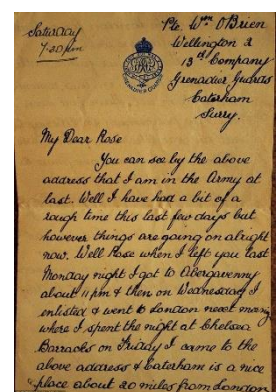 Saturday
7.30 pm
Pte. Wm O'Brien
Wellington 2
13th Company
Grenadier Guards
Caterham
Surry.
My Dear Rose
You can see by the above
address that I am in the Army at
last. Well I have had a bit of a
rough time this last few days but
however things are going on alright
now. Well Rose when I left you last
Monday night I got to Abergavenny
about 11 pm & then on Wednesday I
enlisted & went to London next morn
where I spent the night at Chelsea
Barracks on Friday I came to the
above address & Caterham is a nice
place about 20 miles from London